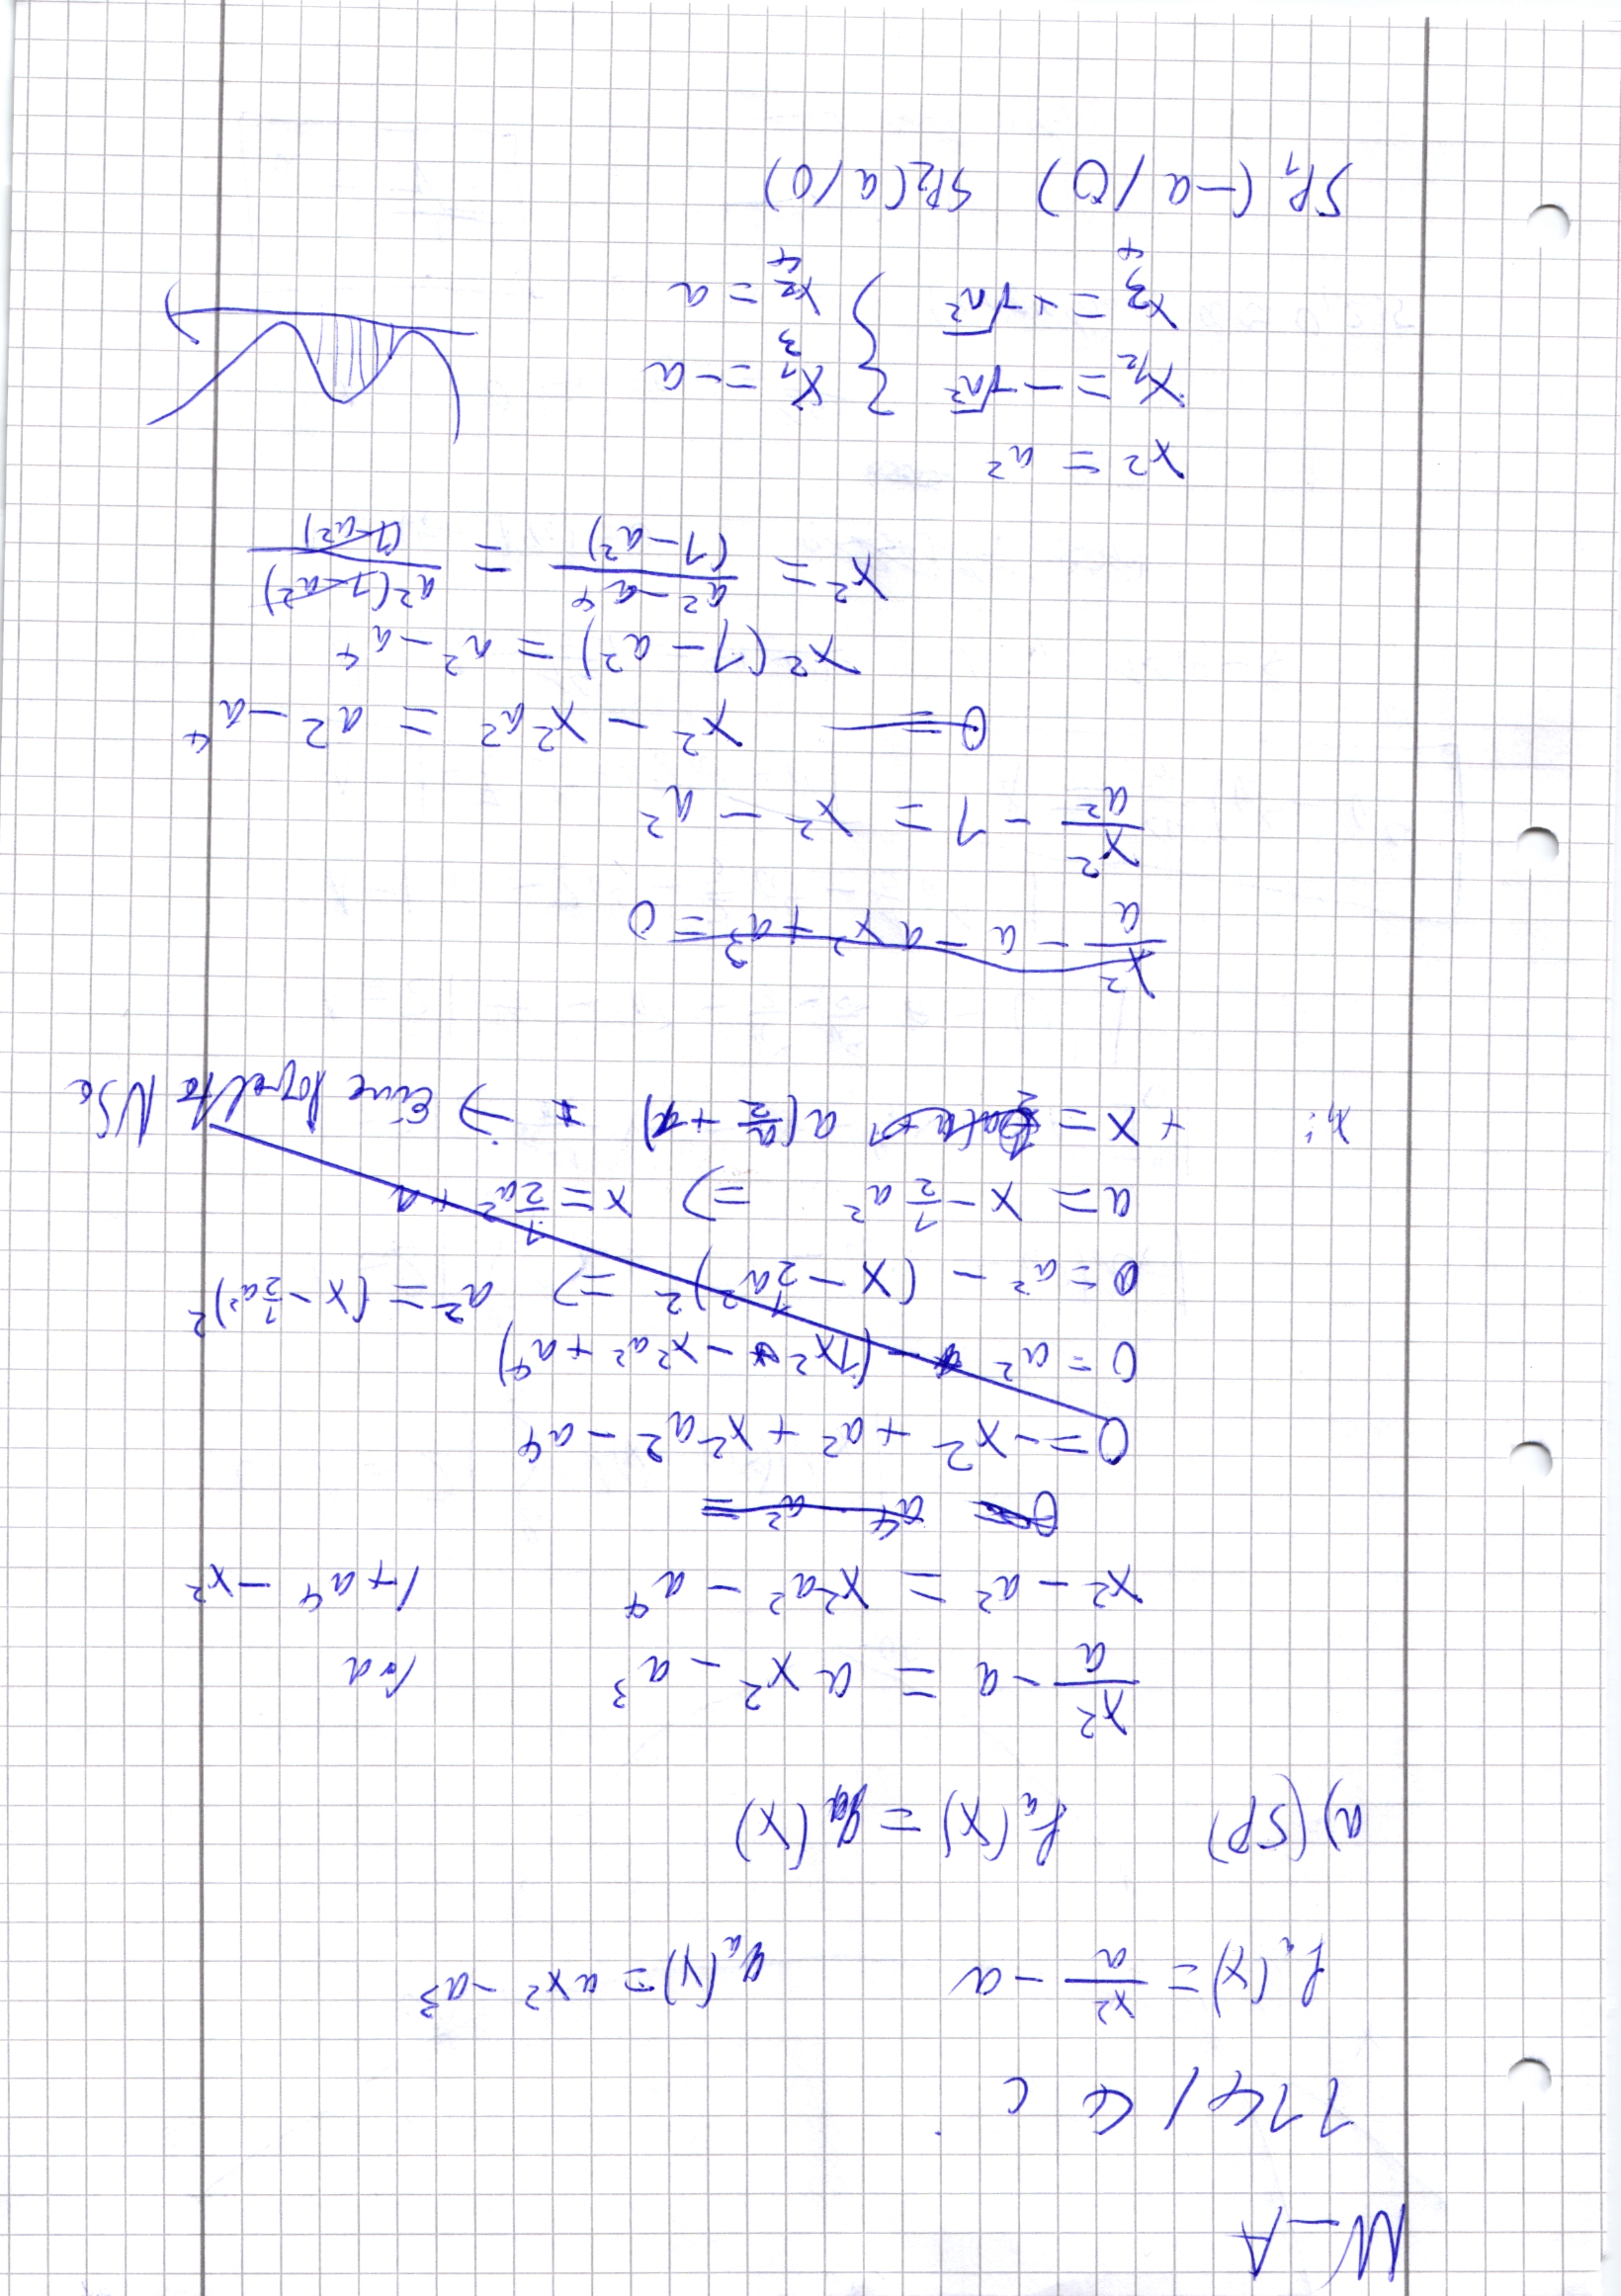 M-A
114/4 c
fₐ(x) = x²/a - a    gₐ(x) = ax² - a³
a) (SP)    fₐ(x) = gₐ(x)
x²/a - a = ax² - a³    |·a
x² - a² = x²a² - a⁴    |+a⁴ -x²
0 = a⁴ - a² =
0 = -x² + a² + x²a² - a⁴
0 = a² - (1x² - x²a² + a⁴)
0 = a² - (x - 1/2 a²)² => a² = (x - 1/2 a²)²
a = x - 1/2 a² => x = 1/2 a² + a
x₁: + x = a(a/2 + 1) => Eine doppelte NSt
x²/a - a - ax² + a³ = 0
x²/a² - 1 = x² - a²
0 = x² - x²a² = a² - a⁴
x²(1 - a²) = a² - a⁴
x² = (a² - a⁴)/(1 - a²) = a²(1 - a²)/(1 - a²)
x² = a²
x1/2 = -√a² } x1/3 = -a
x3/4 = +√a² } x2/4 = a
SP₁(-a/0)  SP₂(a/0)